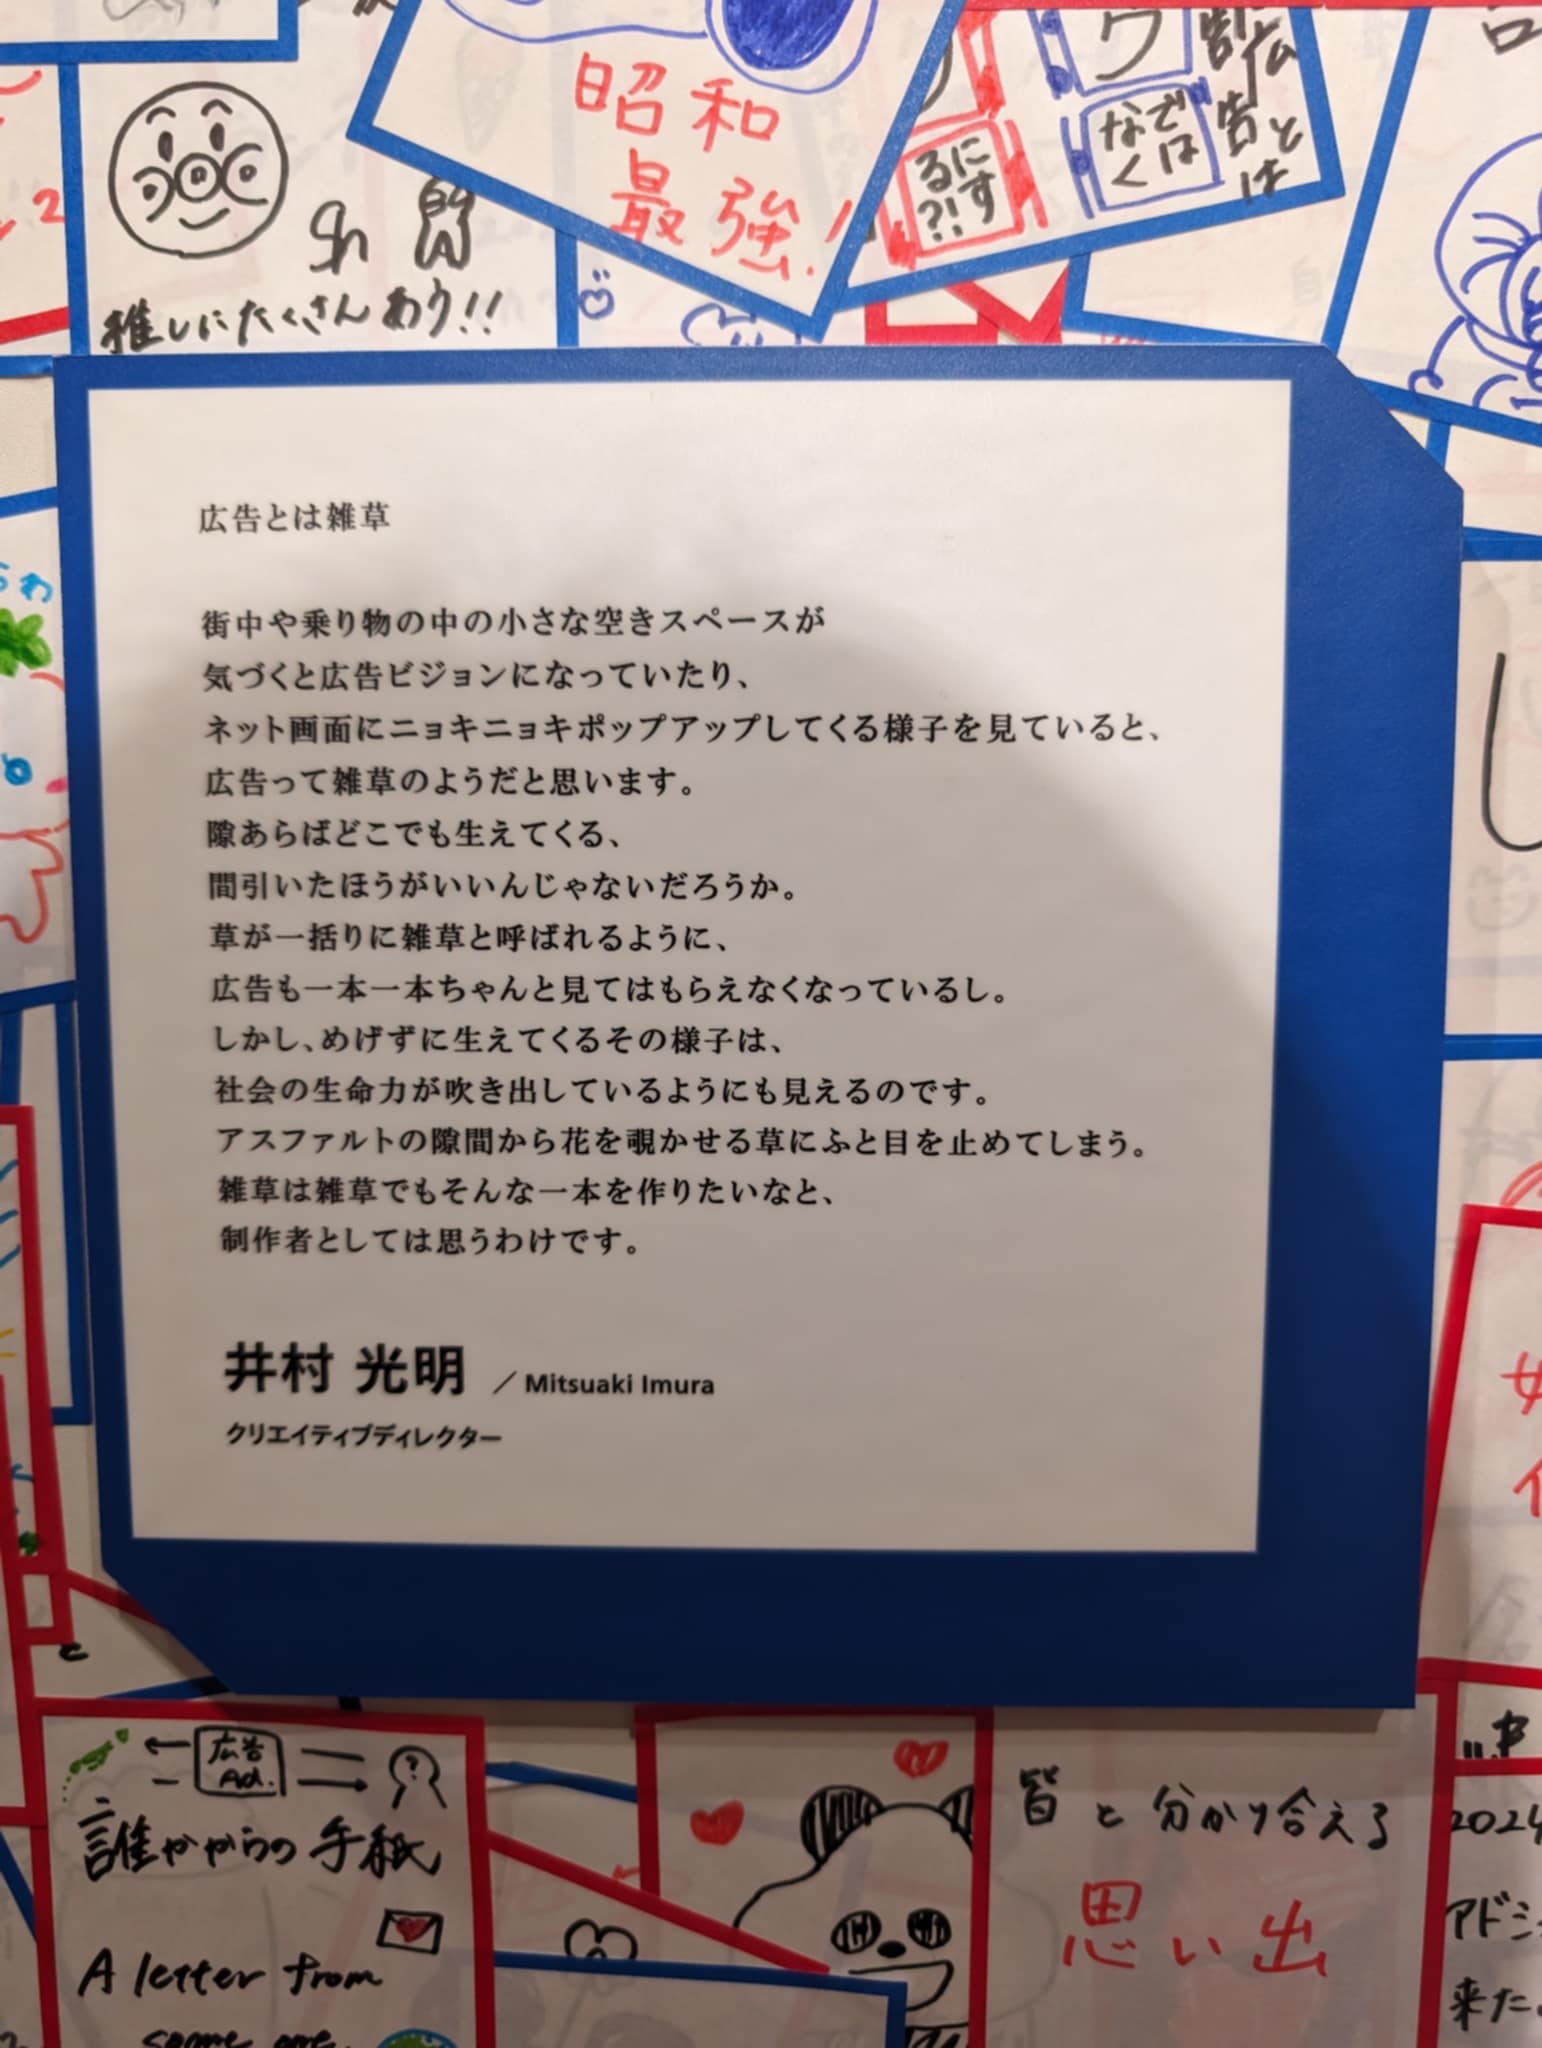 昭和
最強!
広告とは
なでくは
にする?!
推しにたくさんあう!!
広告とは雑草
街中や乗り物の中の小さな空きスペースが
気づくと広告ビジョンになっていたり、
ネット画面にニョキニョキポップアップしてくる様子を見ていると、
広告って雑草のようだと思います。
隙あらばどこでも生えてくる、
間引いたほうがいいんじゃないだろうか。
草が一括りに雑草と呼ばれるように、
広告も一本一本ちゃんと見てはもらえなくなっているし。
しかし、めげずに生えてくるその様子は、
社会の生命力が吹き出しているようにも見えるのです。
アスファルトの隙間から花を覗かせる草にふと目を止めてしまう。
雑草は雑草でもそんな一本を作りたいなと、
制作者としては思うわけです。
井村 光明 ／Mitsuaki Imura
クリエイティブディレクター
広告
Ad.
誰かからの手紙
A letter from
some one
皆と分かり合える
思い出
2024
アドミ
来た